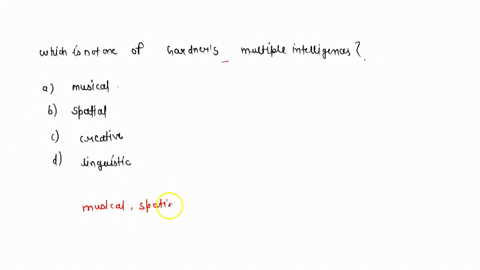 which is not one of Gardner's multiple intelligences?
a) musical
b) spatial
c) creative
d) linguistic
musical, spatia